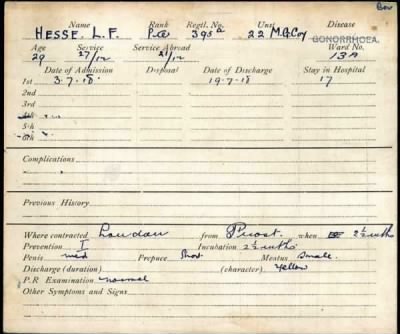 Bov
Name Rank Regtl. No. Unit Disease
HESSE. L.F. Pte 395a 22 M.G.Coy GONORRHOEA.
Age Service Service Abroad Ward No.
29 27/12 21/12 13A
Date of Admission Disposal Date of Discharge Stay in Hospital
1st 3.7.18. 19-7-18 17
2nd
3rd
4th
5th
6th
Complications
Previous History
Where contracted London from Prost. when 2½ mths
Prevention I Incubation 2½ mths
Penis med Prepuce Short Meatus Small.
Discharge (duration) (character) Yellow
P.R Examination normal
Other Symptoms and Signs